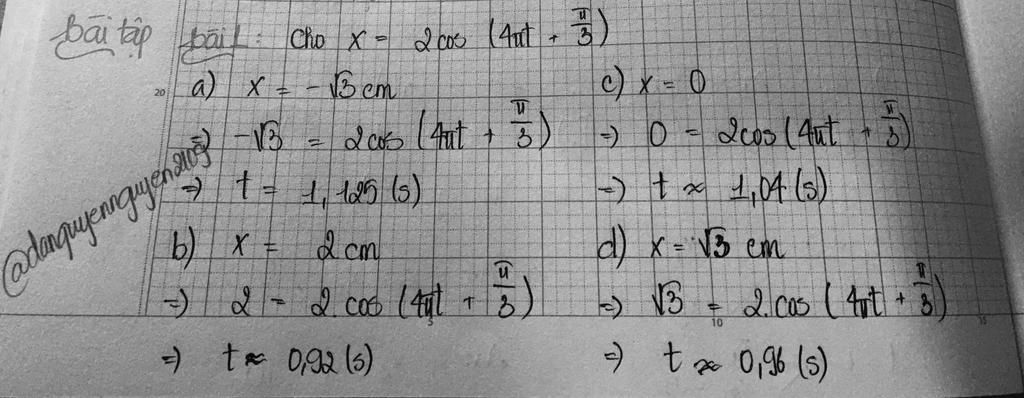 bài tập bài 1: Cho x = 2cos (4πt + π/3)
a) x = -√3 cm
=> -√3 = 2cos (4πt + π/3)
=> t = 1,125 (s)
b) x = 2 cm
=> 2 = 2.cos (4πt + π/3)
=> t ≈ 0,92 (s)
c) x = 0
=> 0 = 2cos (4πt + π/3)
=> t ≈ 1,04 (s)
d) x = √3 cm
=> √3 = 2.cos (4πt + π/3)
=> t ≈ 0,96 (s)
@danquyennguyen2105
20
5
10
15